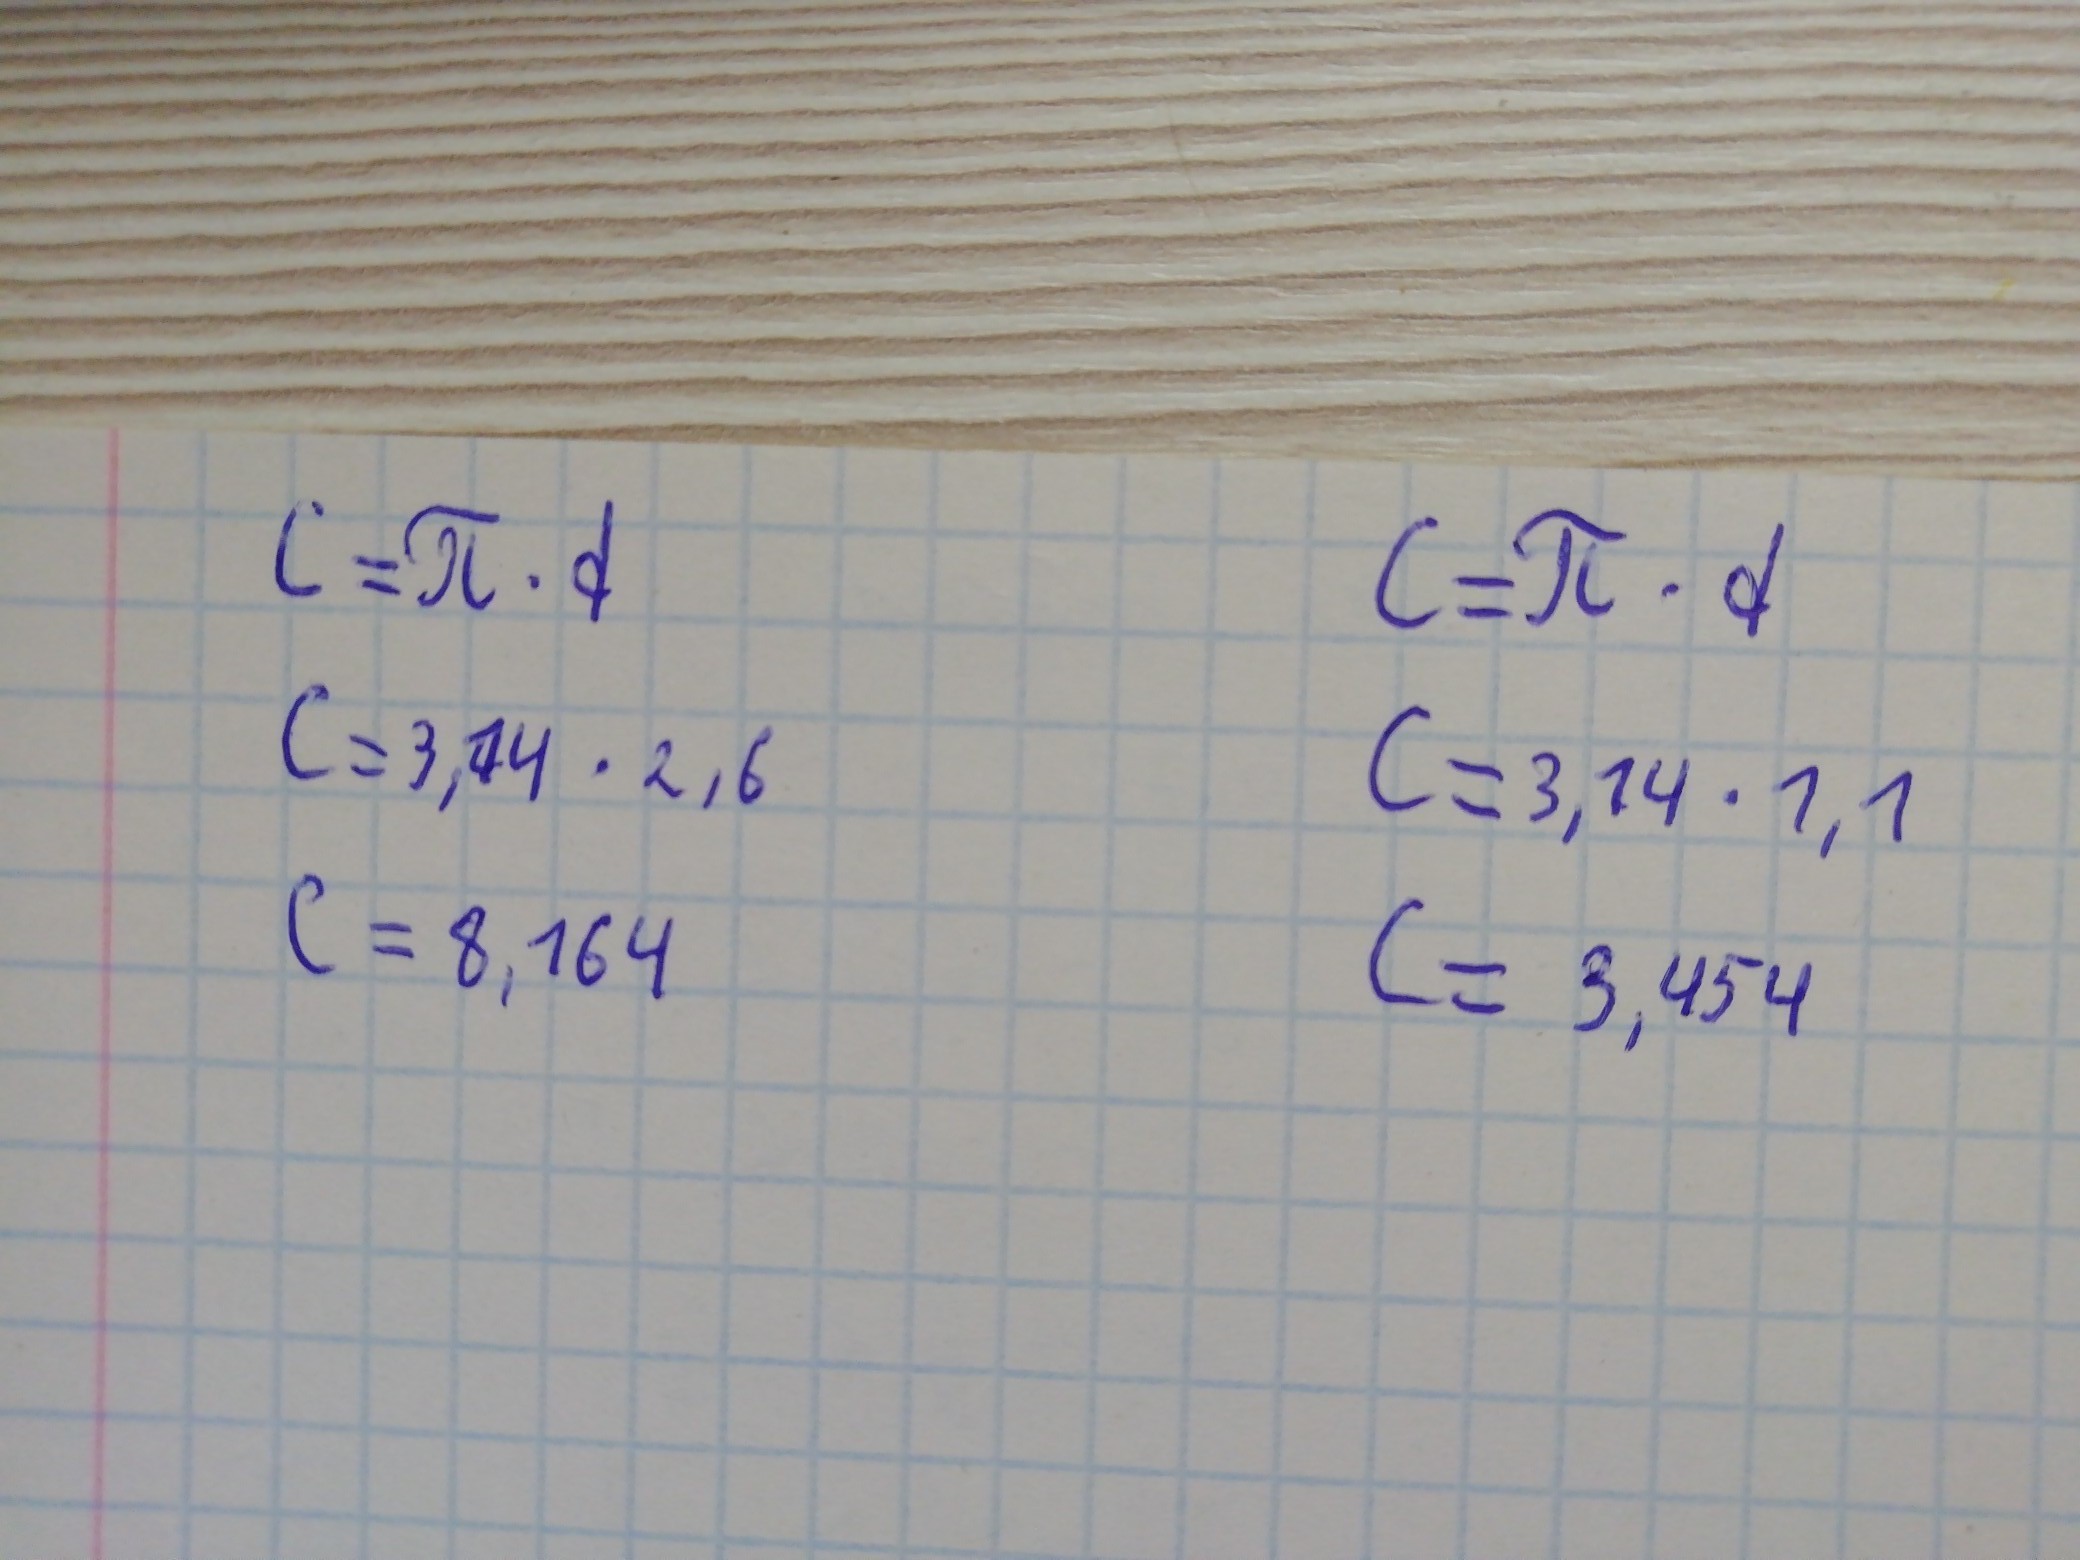 C = π · d
C = 3,14 · 2,6
C = 8,164
C = π · d
C = 3,14 · 1,1
C = 3,454